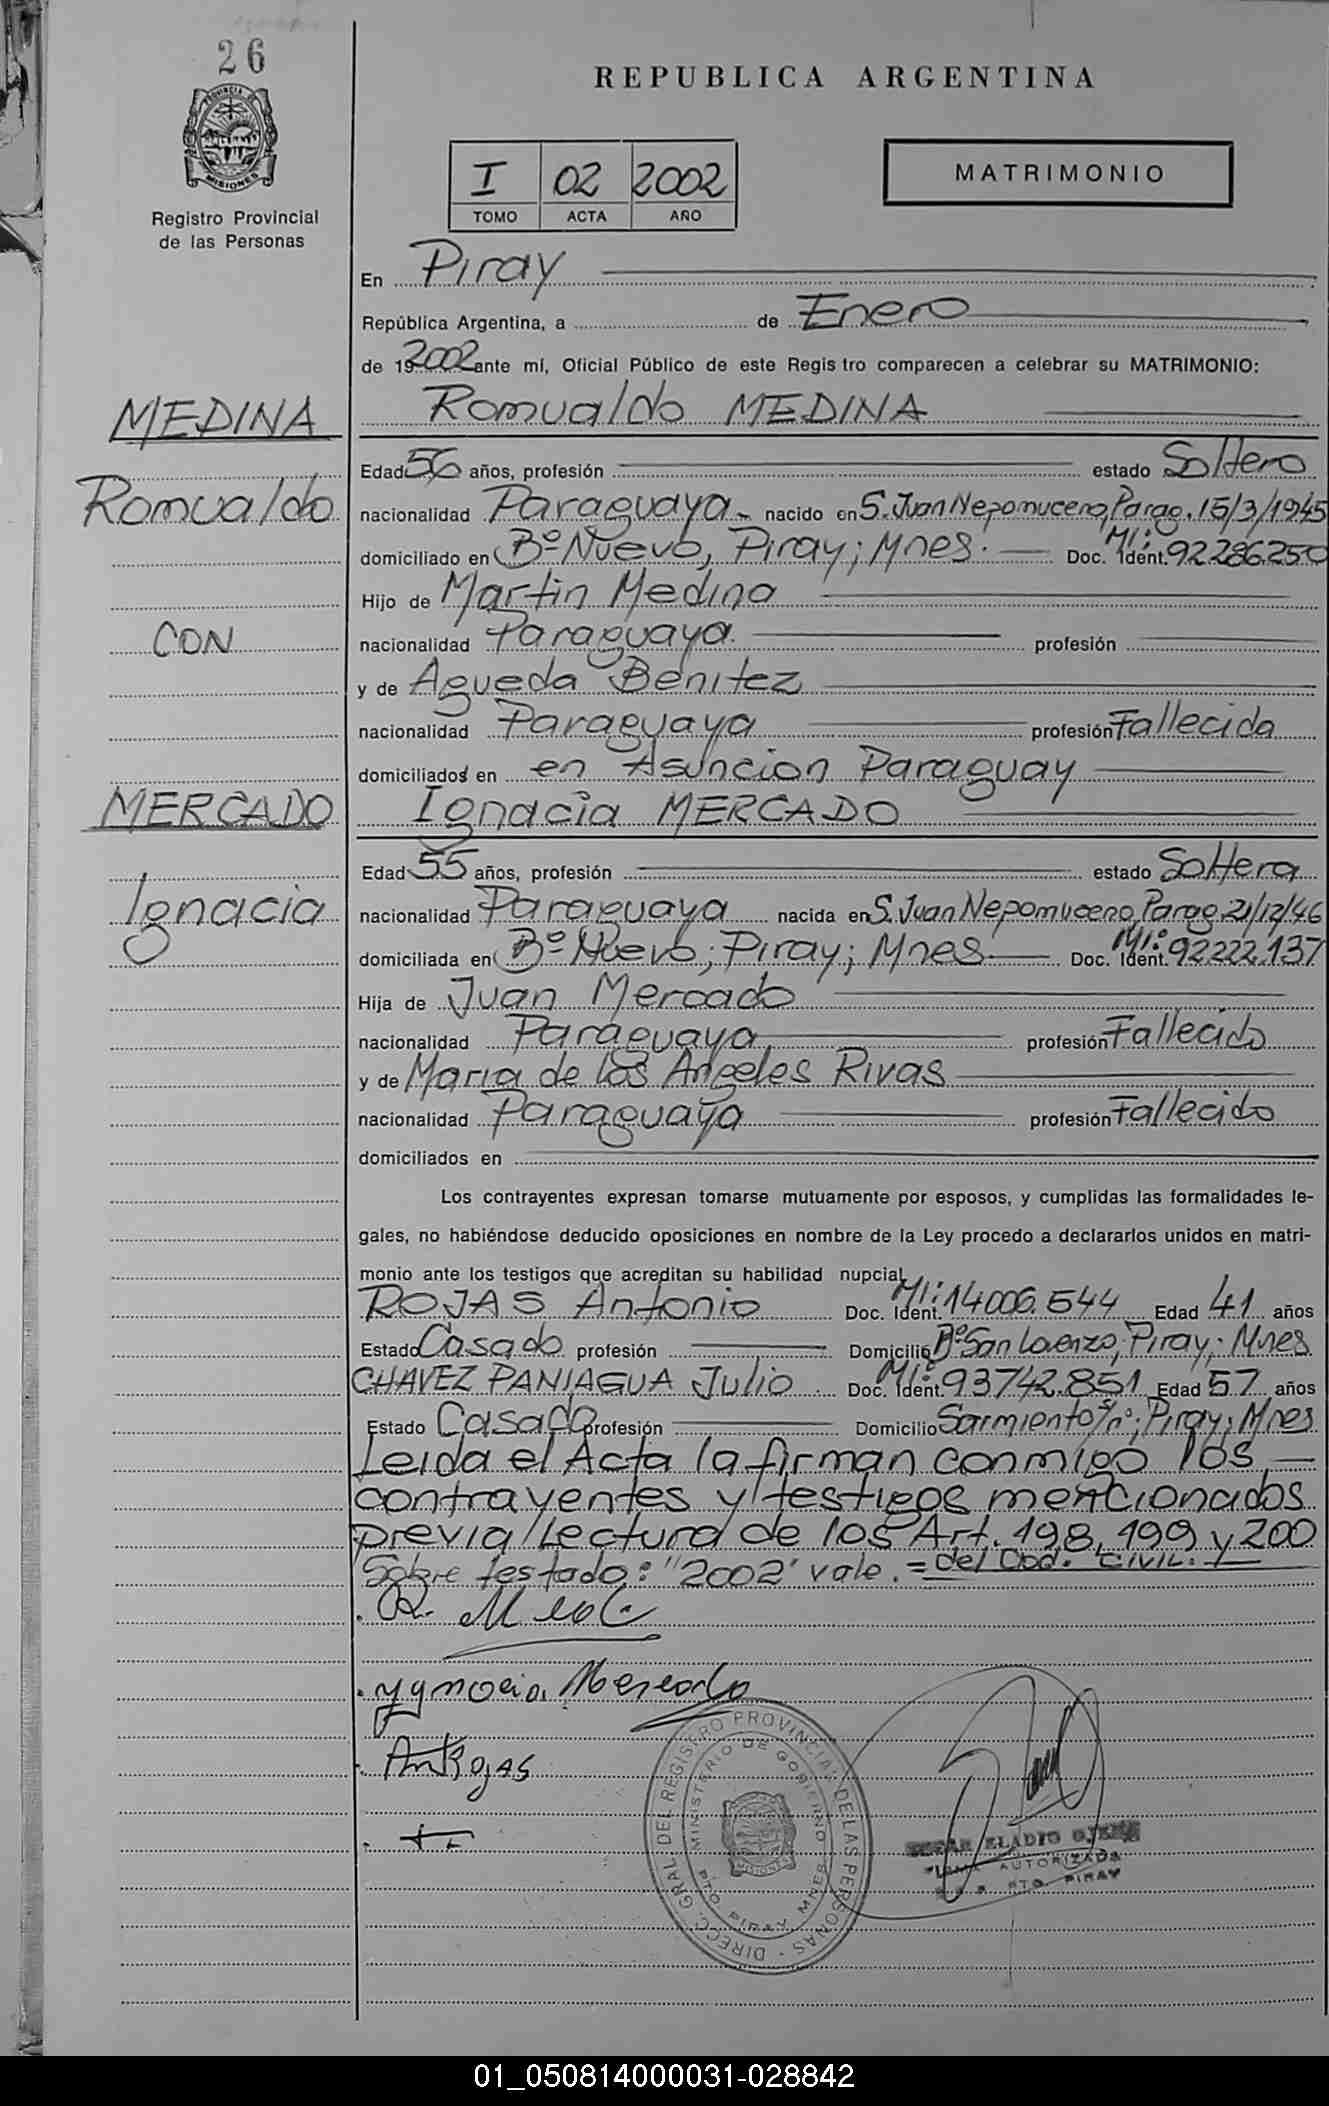 26
REPUBLICA ARGENTINA
PROVINCIA DE
MISIONES
Registro Provincial
de las Personas
I 02 2002
TOMO ACTA AÑO
MATRIMONIO
En Piray
República Argentina, a de Enero
de 19 2002 ante mí, Oficial Público de este Regis tro comparecen a celebrar su MATRIMONIO:
MEDINA Romualdo MEDINA
Edad 56 años, profesión estado Soltero
Romualdo nacionalidad Paraguaya nacido en S. Juan Nepomuceno, Parag. 15/3/1945
domiciliado en Bº Nuevo, Piray; Mnes. Doc. Ident. MI: 92286.250
Hijo de Martin Medina
CON nacionalidad Paraguaya. profesión
y de Agueda Benitez
nacionalidad Paraguaya profesión Fallecida
domiciliados en en Asuncion Paraguay
MERCADO Ignacia MERCADO
Edad 55 años, profesión estado Soltera
Ignacia nacionalidad Paraguaya nacida en S. Juan Nepomuceno, Parag. 21/12/46
domiciliada en Bº Nuevo; Piray; Mnes Doc. Ident. MI: 92222.137
Hija de Juan Mercado
nacionalidad Paraguaya profesión Fallecido
y de Maria de los Angeles Rivas
nacionalidad Paraguaya profesión Fallecido
domiciliados en
Los contrayentes expresan tomarse mutuamente por esposos, y cumplidas las formalidades le-
gales, no habiéndose deducido oposiciones en nombre de la Ley procedo a declararlos unidos en matri-
monio ante los testigos que acreditan su habilidad nupcial
ROJAS Antonio Doc. Ident. MI: 14006.544 Edad 41 años
Estado Casado profesión Domicilio Bº San Lorenzo; Piray; Mnes
CHAVEZ PANIAGUA Julio Doc. Ident. MI: 93742.851 Edad 57 años
Estado Casado profesión Domicilio Sarmiento s/nº; Piray; Mnes
Leida el Acta la firman conmigo los
contrayentes y testigos mencionados
previa lectura de los Art. 198, 199 y 200
Sobre testado: "2002" vale. = del Cod. Civil.
ygnacia Mercado
Ant Rojas
DIRECC. GRAL DEL REGISTRO PROVINCIAL DE LAS PERSONAS
MINISTERIO DE GOBIERNO
PTO PIRAY MNES
MISIONES
ELADIO
FIRMA AUTORIZADA
PTO. PIRAY
01_050814000031-028842